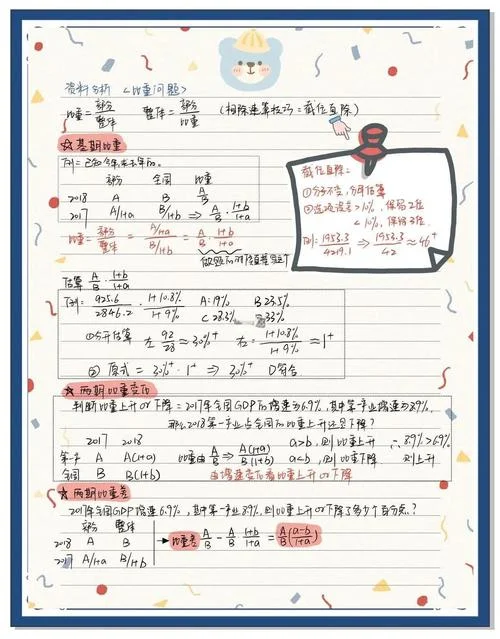 资料分析 <比重问题>
比重=部分/整体 整体=部分/比重 (相除速算技巧:截位直除)
☆基期比重
例:已知今年求去年的。
部分 全国 比重
2018 A B A/B
2017 A/1+a B/1+b ⇒ A/B · 1+b/1+a
比重=部分/整体=A/1+a / B/1+b = A/B · 1+b/1+a
截位直除:
①分子不变,分母估算
②选项误差>10%,保留2位
<10%,保留3位
例:1953.3/4219.1 ⇒ 1953.3/42 ≈46⁺
估算 A/B · 1+b/1+a
例:925.6/2846.2 · 1+10.8%/1+9% A:19% B 23.5%
C 28.3% D 33%
①分开估算 左 92/28 ≈30%⁺ 右=1+10.8%/1+9% ≈1⁺
② 原式=30%⁺·1⁺ ⇒ 30%⁺ D符合
☆两期比重变化
判断比重上升or下降:2017年全国GDP的增速为6.9%,其中第一产业增速为8.9%,
那么2018第一产业占全国的比重上升还是下降?
2017 2018
第一产 A A(1+a) 比重由 A/B ⇒ A(1+a)/B(1+b) a>b,则比重上升 ∴8.9%>6.9%
a<b,则比重下降 则上升
全国 B B(1+b) 由增速变化看比重上升or下降
☆两期比重差
2017年全国GDP增速6.9%,其中第一产业8.9%,则比重上升or下降了多少个百分点?
部分 整体
2018 A B
2017 A/1+a B/1+b
比重差 A/B - A/B · 1+b/1+a = A/B(a-b/1+a)